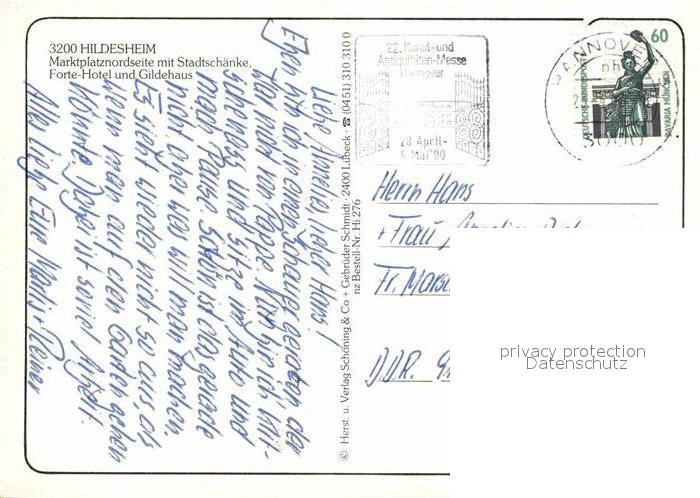 3200 HILDESHEIM
Marktplatznordseite mit Stadtschänke,
Forte-Hotel und Gildehaus
Liebe Amelie, lieber Hans!
Eben bin ich in einen Schauer geraten der
war nicht von Pappe. Nun bin ich klit-
schenaß und sitze im Auto und
mach Pause. Schön ist das gerade
nicht aber was will man machen.
Es sieht wieder nicht so aus, als
wenn man auf den Garten gehen
könnte. Dabei ist soviel Arbeit.
Alles Liebe Eure Mantis + Reiner
© Herst. u. Verlag Schöning & Co + Gebrüder Schmidt · 2400 Lübeck · ☎ (0451) 310 310 0
nz Bestell-Nr. Hi 276
22. Kunst-und
Antiquitäten-Messe
Hannover
28. April-
6. Mai '90
HANNOVER
3000
60
DEUTSCHE BUNDESPOST
BAVARIA MÜNCHEN
Herrn Hans
+ Frau
Fr.
DDR
privacy protection
Datenschutz